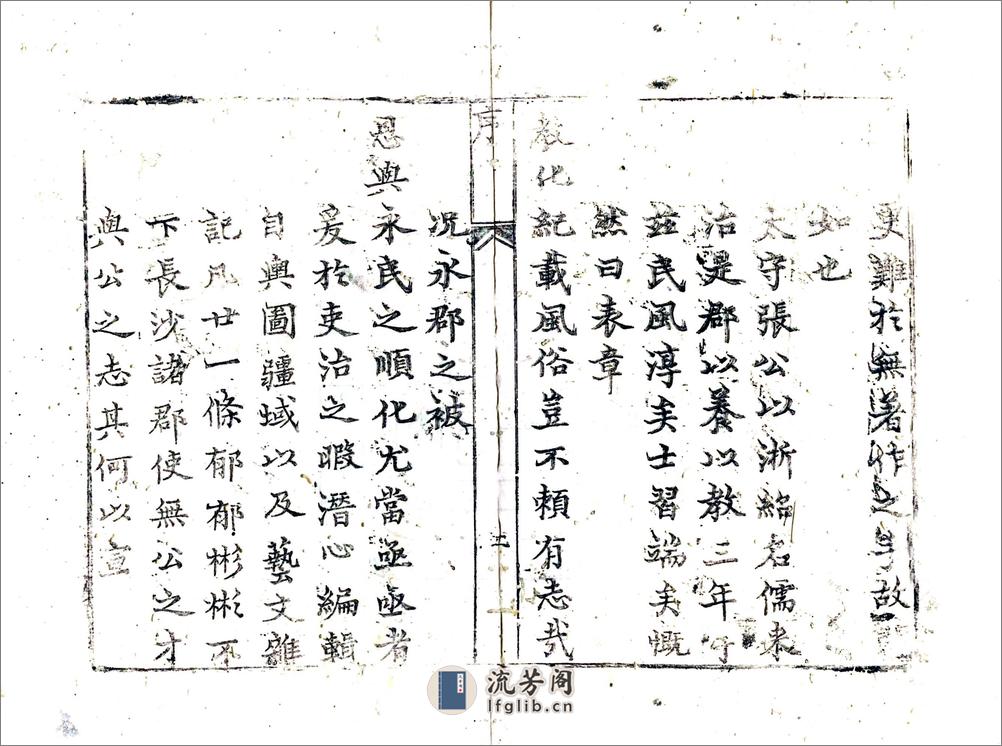 更難於無著作之手故
如也
太守張公以浙紹名儒來
治是郡以養以教三年於
茲民風淳矣士習端矣慨
然曰表章
教化紀載風俗豈不頼有志哉
序
況永郡之被
恩與永民之順化尤當亟亟者
爰於吏治之暇潛心編輯
自輿圖疆域以及藝文雜
記凡廿一條郁郁彬彬不
下長沙諸郡使無公之才
與公之志其何以宣
流芳阁
lfglib.cn